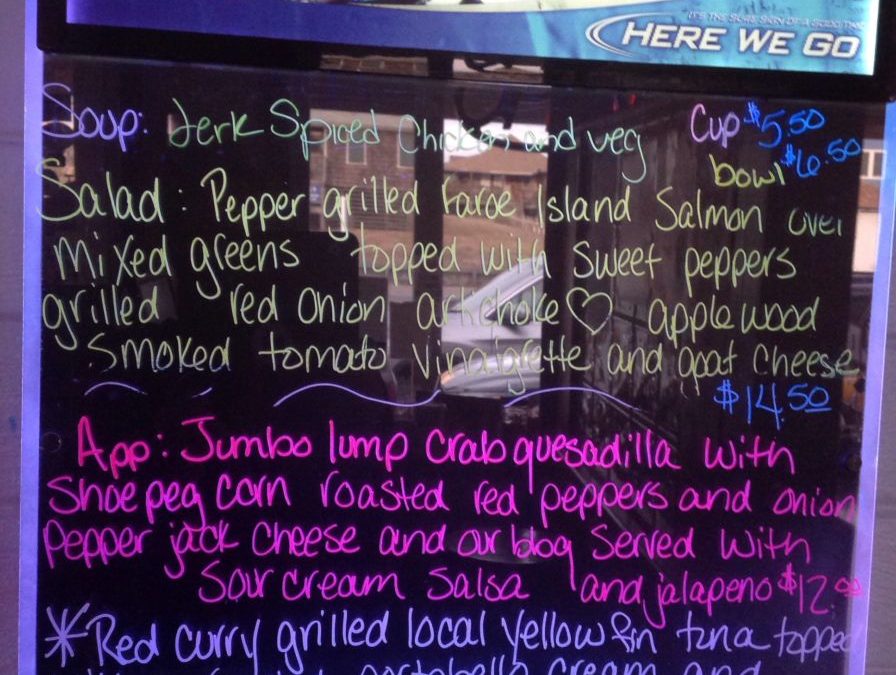 IT'S THE SURE SIGN OF A GOOD TIME
HERE WE GO
Soup: Jerk Spiced Chicken and veg Cup $5.50
bowl $6.50
Salad: Pepper grilled Faroe Island Salmon over
mixed greens topped with sweet peppers
grilled red onion artichoke ♡ applewood
smoked tomato vinaigrette and goat cheese
$14.50
App: Jumbo lump crab quesadilla with
Shoepeg corn roasted red peppers and onion
pepper jack cheese and our blog served with
sour cream salsa and jalapeno $12.00
*Red curry grilled local yellowfin tuna topped
portobello cream and